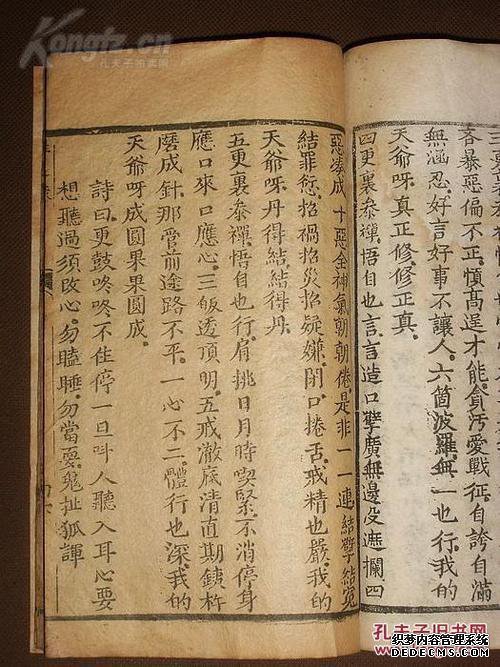 吝暴惡偏不正,慎髙逞才能,貪汚愛戰征,自誇自滿
無涵忍,好言好事不讓人,六箇波羅,無一也行,我的
天爺呀,真正修,修正真,
四更裏叅禪,悟自也言,言造口孽廣無邊,没遮攔,四
惡湊成十惡全,神氣朝朝倦,是非一一連,結孽結冤
結罪愆,招禍招災招疑嫌,閉口捲舌,戒精也嚴,我的
天爺呀,丹得結,結得丹,
五更裏叅禪,悟自也行,肩挑日月時喫緊,不消停,身
應口來口應心,三皈透頂明,五戒澈底清,直期鐵杵
磨成針,那管前途路不平,一心不二,體行也深,我的
天爺呀,成圓果,果圓成,
詩曰,更鼓咚咚不住停,一旦呌人聽入耳,心要
想,聽過須改心,勿瞌睡,勿當耍,鬼扯狐諢
Kongfz.cn
孔夫子拍卖网
孔夫子旧书网
织梦内容管理系统